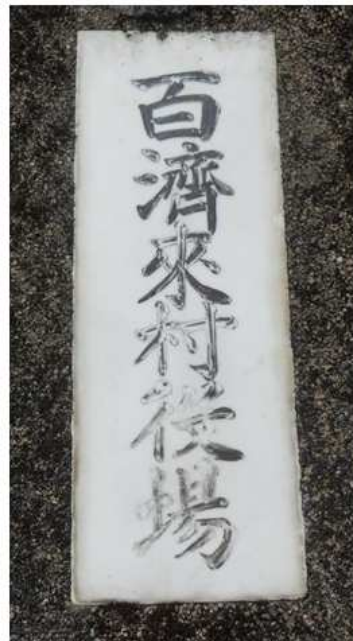 百濟來村役場